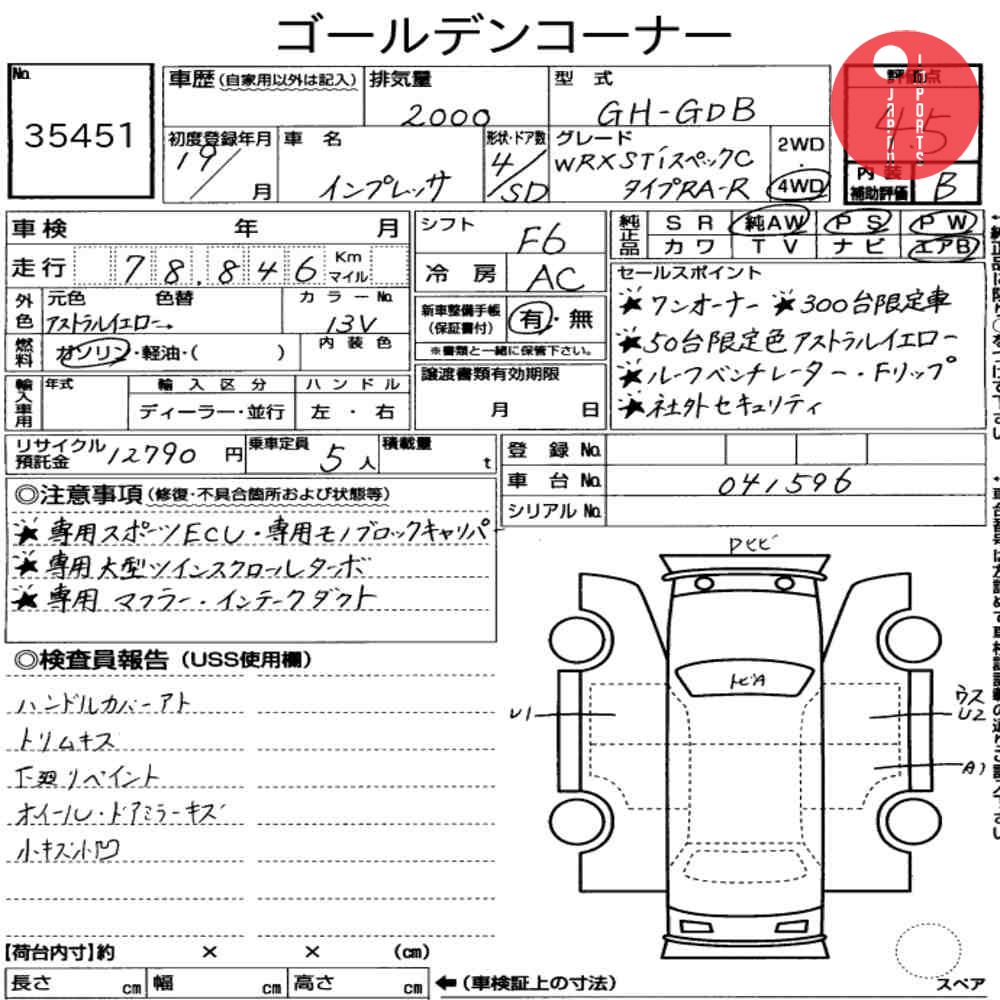 ゴールデンコーナー
No.
35451
車歴(自家用以外は記入)
排気量
2000
型 式
GH-GDB
評価点
4.5
JAPAN
IMPORTS
初度登録年月
19/
月
車 名
インプレッサ
形状・ドア数
4/SD
グレード
WRX STi スペックC
タイプRA-R
2WD
・
4WD
内 装
補助評価
B
車検 年 月
走行 78,846 Km
マイル
シフト
F6
冷房 AC
純正品
SR 純AW PS PW
カワ TV ナビ エアB
外色
元色 色替
アストラルイエロー
カラーNo.
13V
燃料
ガソリン・軽油・( )
内装色
新車整備手帳
(保証書付)
有・無
※書類と一緒に保管下さい。
セールスポイント
★ワンオーナー ★300台限定車
★50台限定色アストラルイエロー
★ルーフベンチレーター・Fリップ
★社外セキュリティ
輸入車用
年式
輸入区分
ディーラー・並行
ハンドル
左・右
譲渡書類有効期限
月 日
リサイクル
預託金
12790円
乗車定員
5人
積載量
t
登録No.
車台No. 041596
シリアルNo.
◎注意事項(修復・不具合箇所および状態等)
★専用スポーツECU・専用モノブロックキャリパー
★専用大型ツインスクロールターボ
★専用マフラー・インテークダクト
◎検査員報告(USS使用欄)
ハンドルカバーアト
トリムキズ
下廻リペイント
ホイール・ドアミラーキズ
小キズ小凹
トビA
U1
ウス
U2
A1
【荷台内寸】約 × × (cm)
長さ cm 幅 cm 高さ cm
←(車検証上の寸法)
スペア